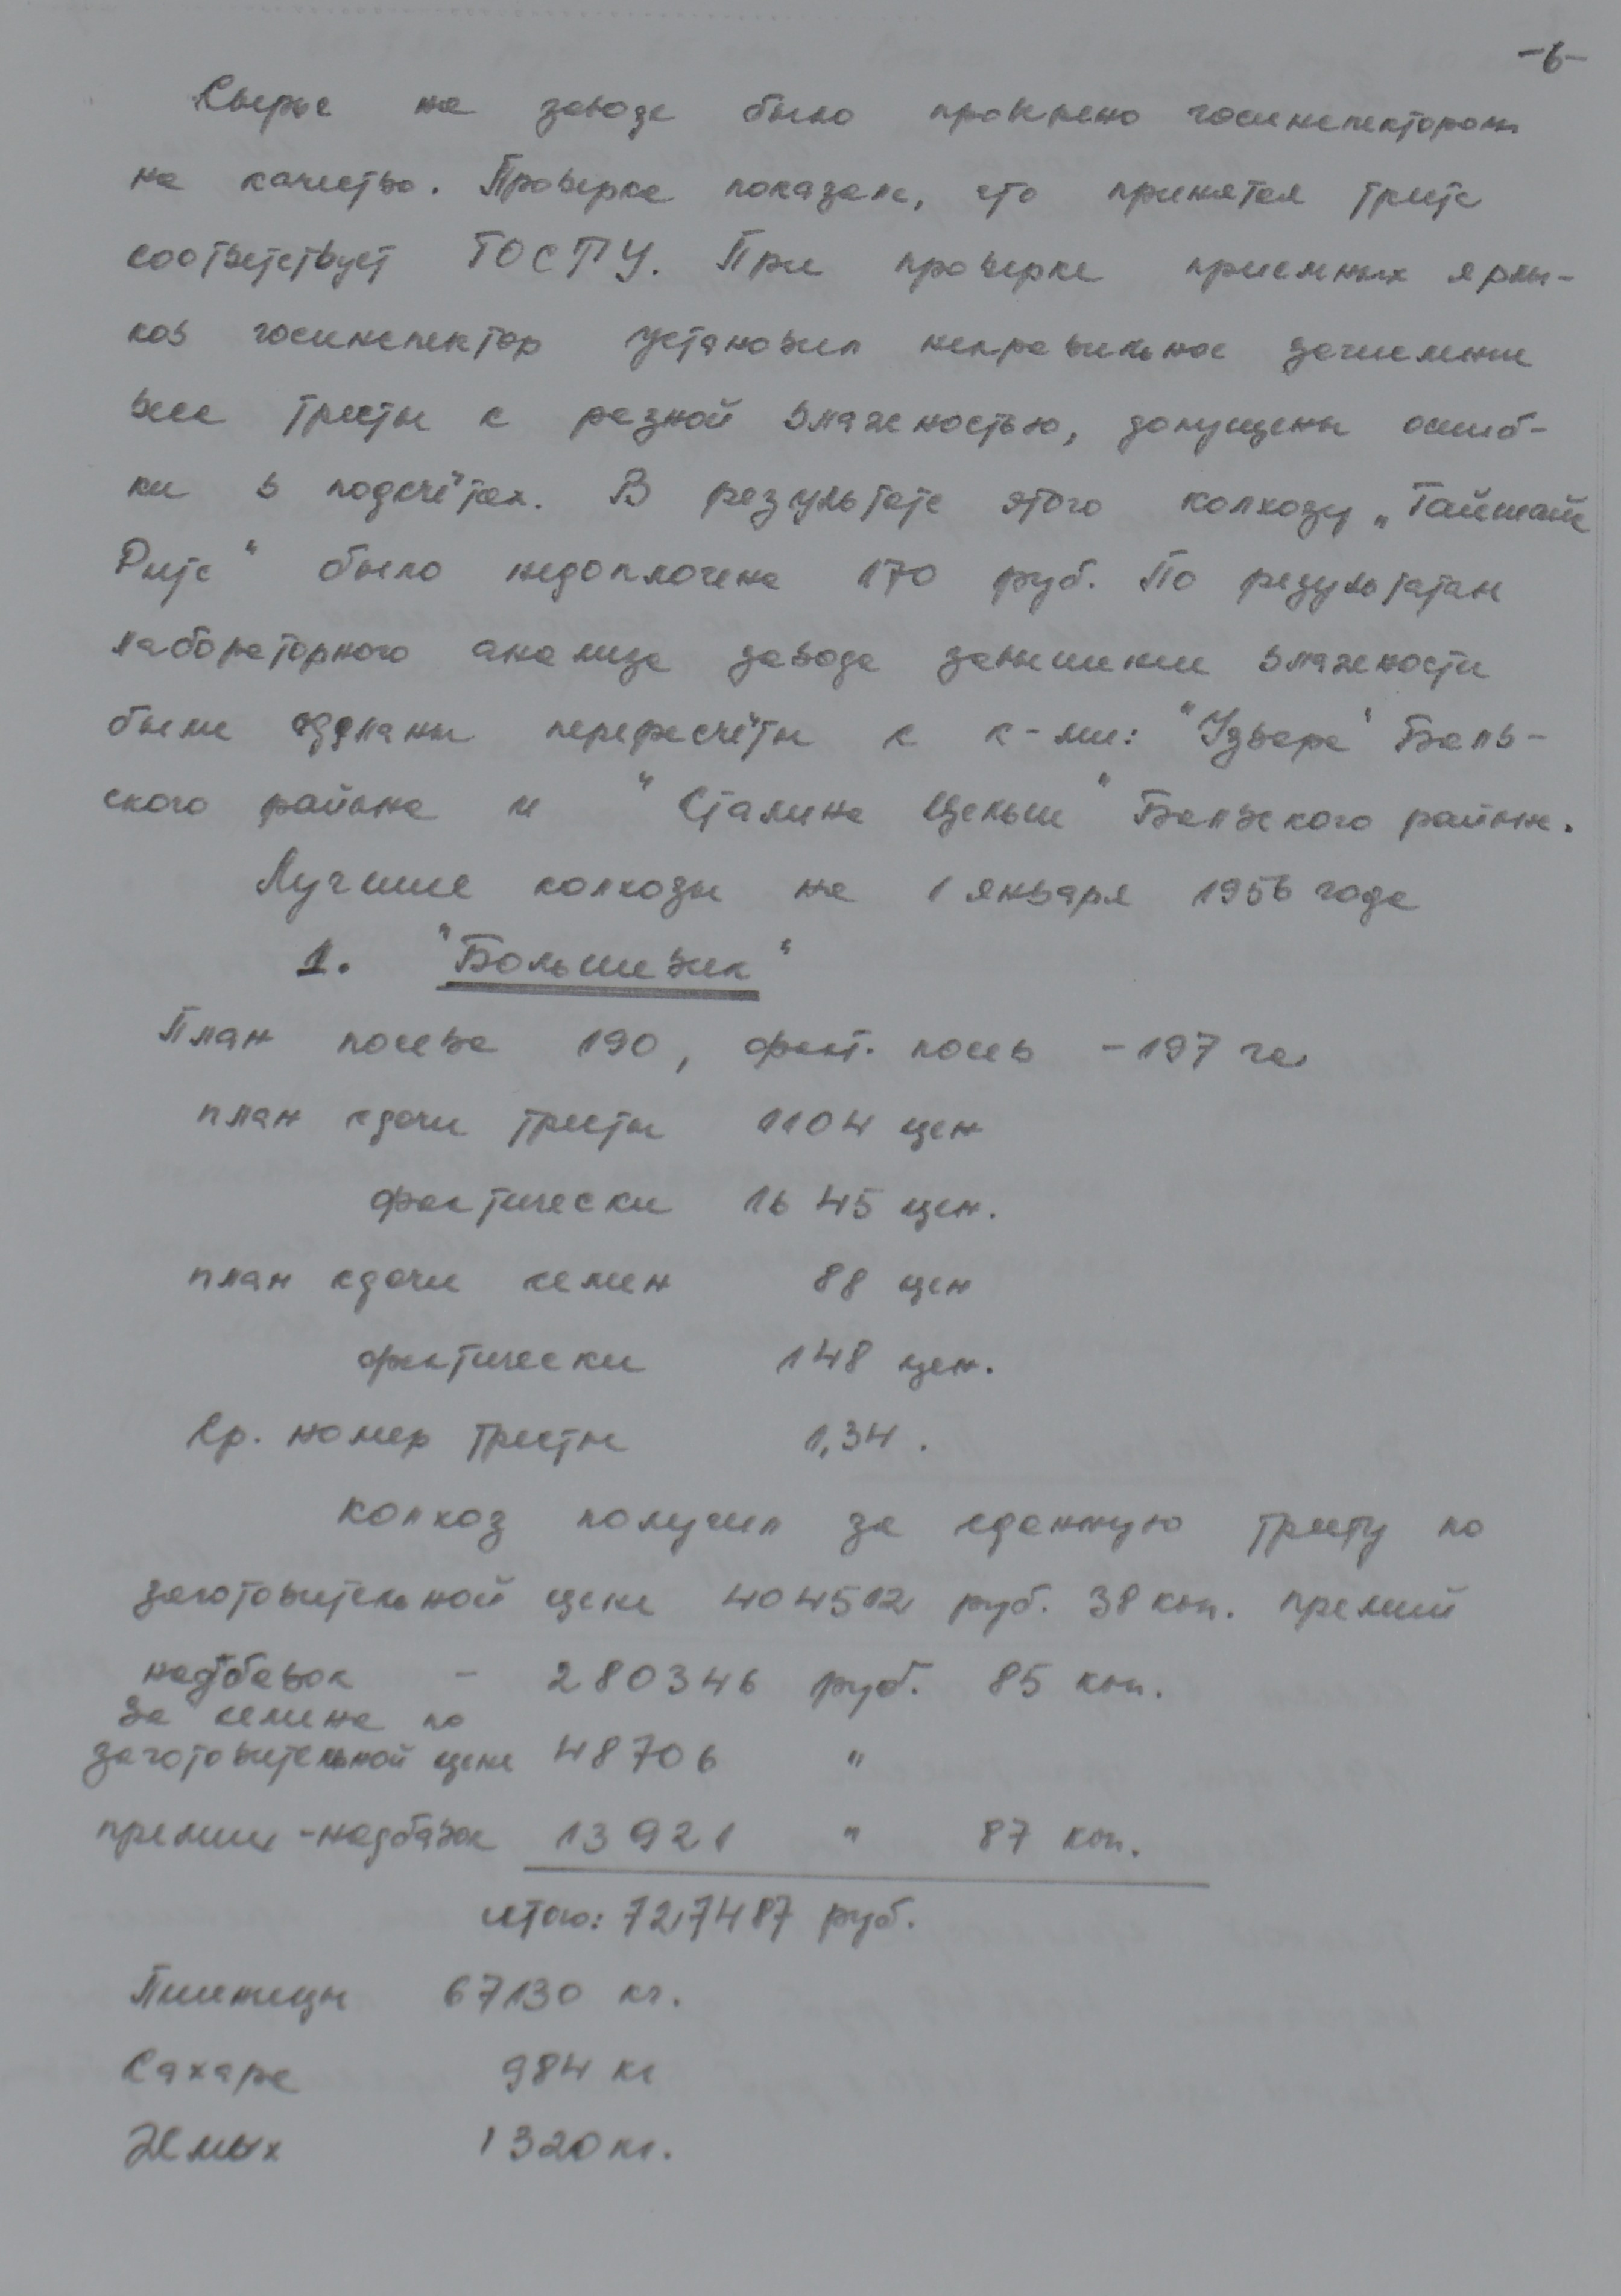 -6-
Сырье на заводе было проверено госинспектором
на качество. Проверка показала, что принятая треста
соответствует ГОСТУ. При проверке приемных ярлы-
ков госинспектор установил неправильное зачисление
веса тресты с разной влажностью, допущены ошиб-
ки в подсчётах. В результате этого колхозу „Гайшай
Ритс" было недоплочена 170 руб. По результатам
лабораторного анализа завода завышении влажности
были сделаны перерасчёты с к-ми: "Узвара" Балв-
ского района и "Сталина Цельш" Балвского района.
Лучшие колхозы на 1 января 1956 года
1. "Большевик"
План посева 190, факт. посев - 197 га
план сдачи тресты 1104 цен
фактически 1645 цен.
план сдачи семян 88 цен
фактически 148 цен.
Ср. номер тресты 1,34.
колхоз получил за сданную тресту по
заготовительной цене 404512 руб. 38 коп. премий
надбавок - 280346 руб. 85 коп.
За семена по
заготовительной цене 48706 "
премии-надбавок 13921 " 87 коп.
итого: 727487 руб.
Пшеницы 67130 кг.
Сахара 984 кг
Жмых 1320 кг.